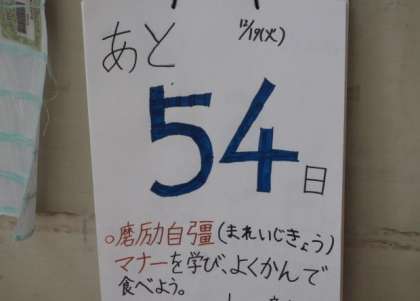 12/19(火)
あと
54日
。磨励自彊(まれいじきょう)
マナーを学び、よくかんで
食べよう。